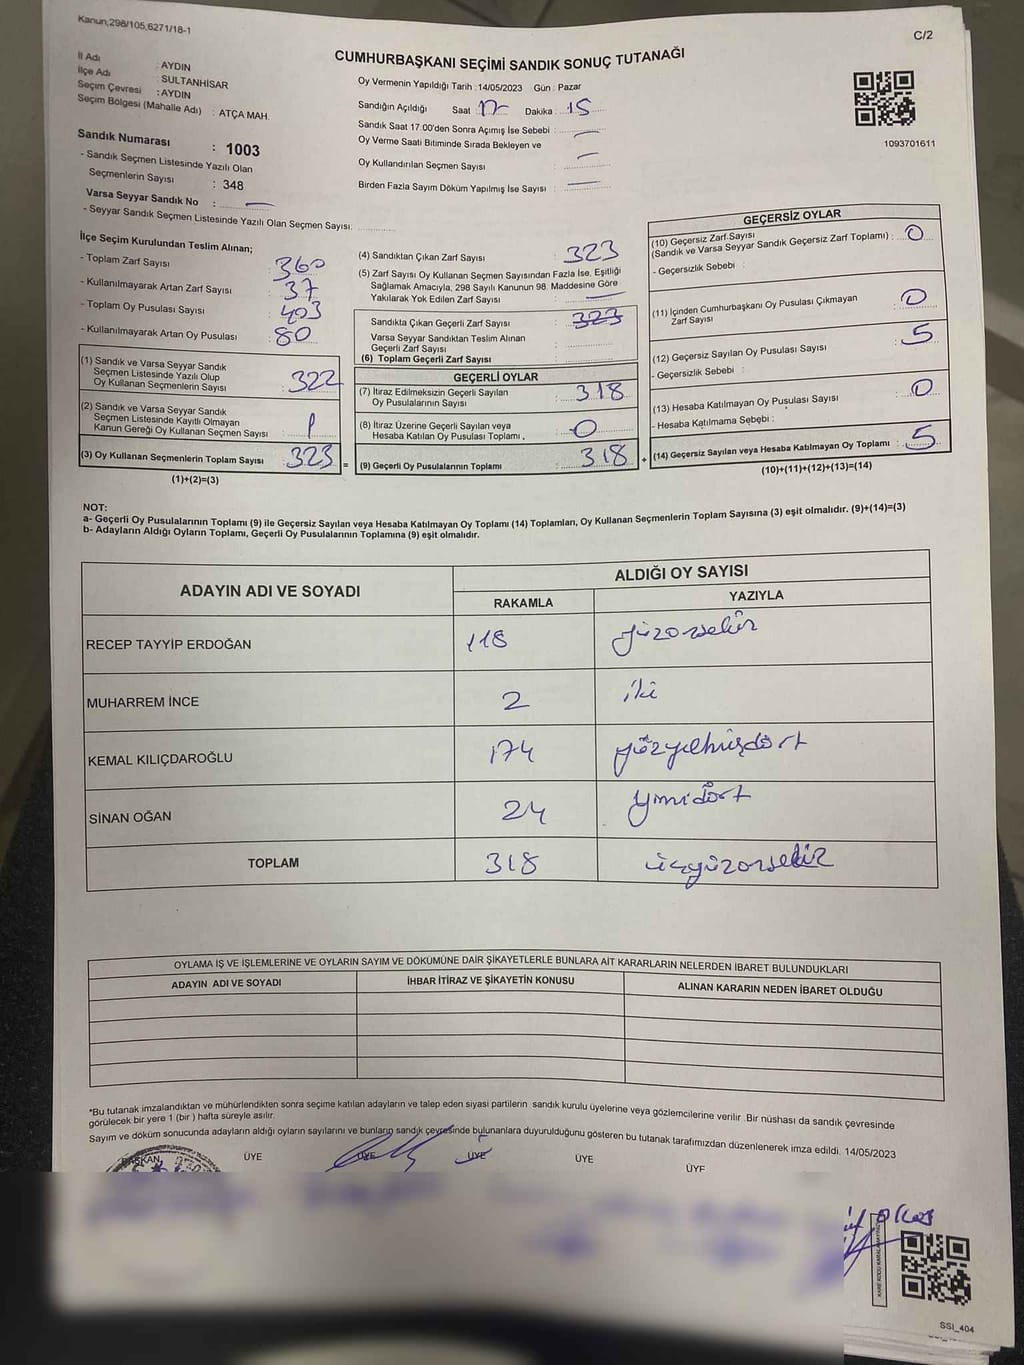 Kanun,298/105,6271/18-1
C/2
CUMHURBAŞKANI SEÇİMİ SANDIK SONUÇ TUTANAĞI
İl Adı : AYDIN
İlçe Adı : SULTANHİSAR
Seçim Çevresi : AYDIN
Seçim Bölgesi (Mahalle Adı) : ATÇA MAH.
Sandık Numarası : 1003
- Sandık Seçmen Listesinde Yazılı Olan
Seçmenlerin Sayısı : 348
Varsa Seyyar Sandık No :
- Seyyar Sandık Seçmen Listesinde Yazılı Olan Seçmen Sayısı:
Oy Vermenin Yapıldığı Tarih : 14/05/2023 Gün : Pazar
Sandığın Açıldığı Saat : 17 Dakika : 15
Sandık Saat 17:00'den Sonra Açımış İse Sebebi :
Oy Verme Saati Bitiminde Sırada Bekleyen ve
Oy Kullandırılan Seçmen Sayısı :
Birden Fazla Sayım Döküm Yapılmış İse Sayısı :
1093701611
İlçe Seçim Kurulundan Teslim Alınan;
- Toplam Zarf Sayısı : 360
- Kullanılmayarak Artan Zarf Sayısı : 37
- Toplam Oy Pusulası Sayısı : 403
- Kullanılmayarak Artan Oy Pusulası : 80
(1) Sandık ve Varsa Seyyar Sandık
Seçmen Listesinde Yazılı Olup
Oy Kullanan Seçmenlerin Sayısı : 322
(2) Sandık ve Varsa Seyyar Sandık
Seçmen Listesinde Kayıtlı Olmayan
Kanun Gereği Oy Kullanan Seçmen Sayısı : 1
(3) Oy Kullanan Seçmenlerin Toplam Sayısı : 323
(1)+(2)=(3)
=
(4) Sandıktan Çıkan Zarf Sayısı : 323
(5) Zarf Sayısı Oy Kullanan Seçmen Sayısından Fazla İse, Eşitliği
Sağlamak Amacıyla, 298 Sayılı Kanunun 98. Maddesine Göre
Yakılarak Yok Edilen Zarf Sayısı :
Sandıkta Çıkan Geçerli Zarf Sayısı : 323
Varsa Seyyar Sandıktan Teslim Alınan
Geçerli Zarf Sayısı :
(6) Toplam Geçerli Zarf Sayısı
GEÇERLİ OYLAR
(7) İtiraz Edilmeksizin Geçerli Sayılan
Oy Pusulalarının Sayısı : 318
(8) İtiraz Üzerine Geçerli Sayılan veya
Hesaba Katılan Oy Pusulası Toplamı : 0
(9) Geçerli Oy Pusulalarının Toplamı : 318
+
GEÇERSİZ OYLAR
(10) Geçersiz Zarf Sayısı
(Sandık ve Varsa Seyyar Sandık Geçersiz Zarf Toplamı) : 0
- Geçersizlik Sebebi :
(11) İçinden Cumhurbaşkanı Oy Pusulası Çıkmayan
Zarf Sayısı : 0
(12) Geçersiz Sayılan Oy Pusulası Sayısı : 5
- Geçersizlik Sebebi :
(13) Hesaba Katılmayan Oy Pusulası Sayısı : 0
- Hesaba Katılmama Sebebi :
(14) Geçersiz Sayılan veya Hesaba Katılmayan Oy Toplamı : 5
(10)+(11)+(12)+(13)=(14)
NOT:
a- Geçerli Oy Pusulalarının Toplamı (9) ile Geçersiz Sayılan veya Hesaba Katılmayan Oy Toplamı (14) Toplamları, Oy Kullanan Seçmenlerin Toplam Sayısına (3) eşit olmalıdır. (9)+(14)=(3)
b- Adayların Aldığı Oyların Toplamı, Geçerli Oy Pusulalarının Toplamına (9) eşit olmalıdır.
ADAYIN ADI VE SOYADI ALDIĞI OY SAYISI
RAKAMLA YAZIYLA
RECEP TAYYİP ERDOĞAN 118 yüzonsekiz
MUHARREM İNCE 2 iki
KEMAL KILIÇDAROĞLU 174 yüzyetmişdört
SİNAN OĞAN 24 yirmidört
TOPLAM 318 üçyüzonsekiz
OYLAMA İŞ VE İŞLEMLERİNE VE OYLARIN SAYIM VE DÖKÜMÜNE DAİR ŞİKAYETLERLE BUNLARA AİT KARARLARIN NELERDEN İBARET BULUNDUKLARI
ADAYIN ADI VE SOYADI İHBAR İTİRAZ VE ŞİKAYETİN KONUSU ALINAN KARARIN NEDEN İBARET OLDUĞU
*Bu tutanak imzalandıktan ve mühürlendikten sonra seçime katılan adayların ve talep eden siyasi partilerin sandık kurulu üyelerine veya gözlemcilerine verilir. Bir nüshası da sandık çevresinde
görülecek bir yere 1 (bir ) hafta süreyle asılır.
Sayım ve döküm sonucunda adayların aldığı oyların sayılarını ve bunların sandık çevresinde bulunanlara duyurulduğunu gösteren bu tutanak tarafımızdan düzenlenerek imza edildi. 14/05/2023
BAŞKAN ÜYE ÜYE ÜYE ÜYE ÜYE
SSI_404